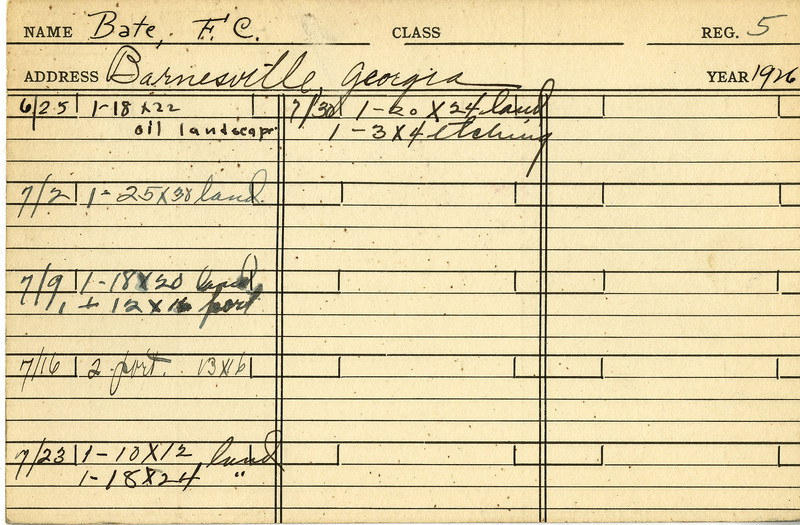 NAME Bate, F. C. CLASS REG. 5
ADDRESS Barnesville, Georgia YEAR 1926
6/25 1-18 x 22
oil landscape
7/2 1- 25x30 land.
7/9 1-18x20 land
1 12 x 16 port
7/16 2 port. 13x16
7/23 1-10x12 land
1-18x24 "
7/30 1-20 x 24 land
1-3x4 etching